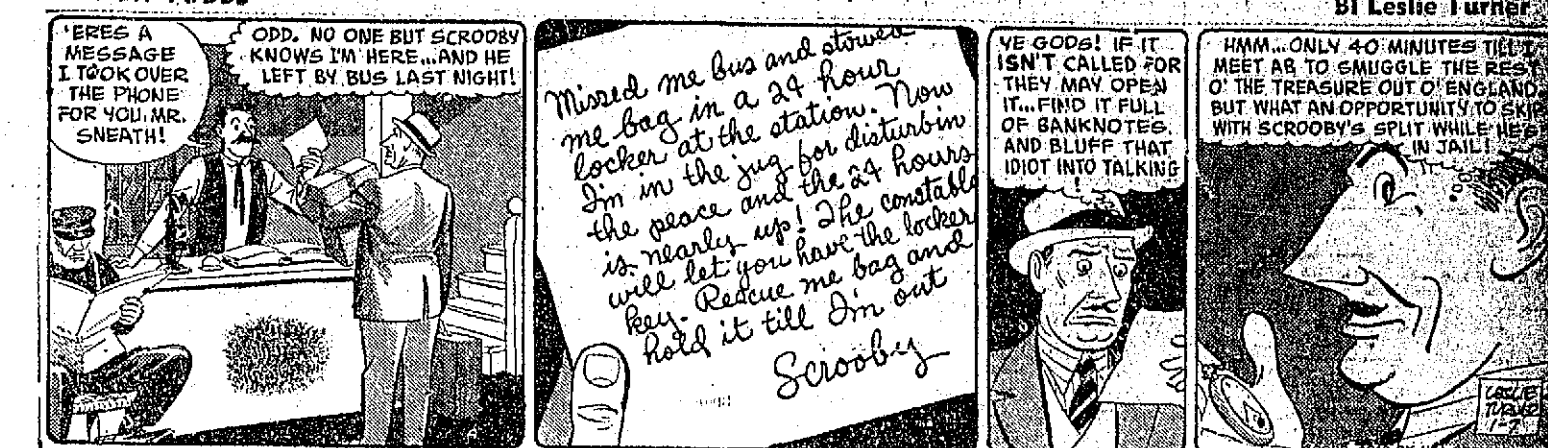 By Leslie Turner
'ERES A
MESSAGE
I TOOK OVER
THE PHONE
FOR YOU, MR.
SNEATH!
ODD. NO ONE BUT SCROOBY
KNOWS I'M HERE...AND HE
LEFT BY BUS LAST NIGHT!
Missed me bus and stowed
me bag in a 24 hour
locker at the station. Now
I'm in the jug for disturbin
the peace and the 24 hours
is nearly up! The constable
will let you have the locker
key. Rescue me bag and
hold it till I'm out
Scrooby
YE GODS! IF IT
ISN'T CALLED FOR
THEY MAY OPEN
IT...FIND IT FULL
OF BANKNOTES.
AND BLUFF THAT
IDIOT INTO TALKING
!
HMM...ONLY 40 MINUTES TILL I
MEET AB TO SMUGGLE THE REST
O' THE TREASURE OUT O' ENGLAND.
BUT WHAT AN OPPORTUNITY TO SKIP
WITH SCROOBY'S SPLIT WHILE HE'S
IN JAIL!
LESLIE
TURNER